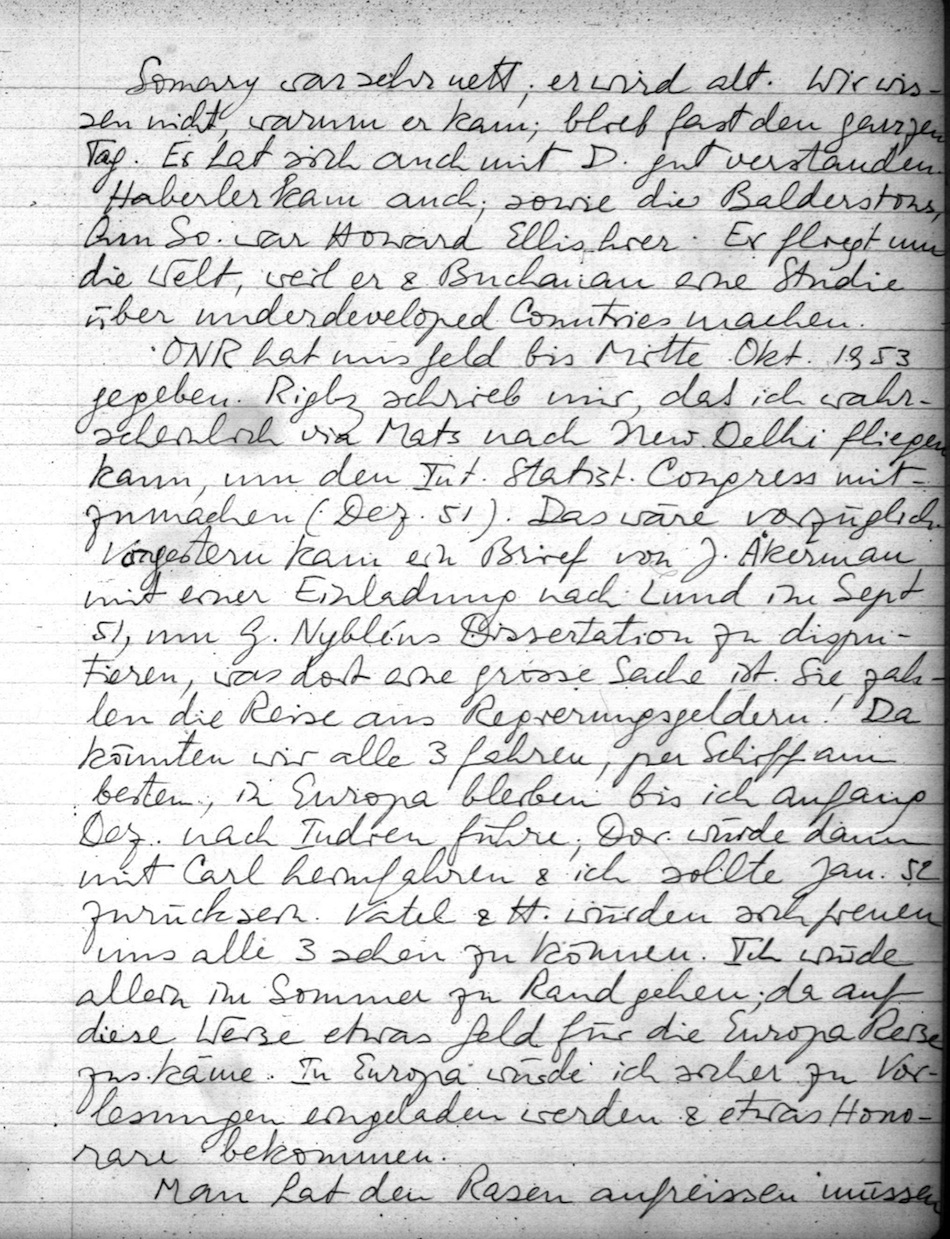 Somary war sehr nett; er wird alt. Wir wis-
sen nicht, warum er kam; blieb fast den ganzen
Tag. Er hat sich auch mit D. gut verstanden.
Haberler kam auch; sowie die Balderstons,
Am So. war Howard Ellis hier. Er fliegt um
die Welt, weil er & Buchanan eine Studie
über underdeveloped Countries machen.
ONR hat uns Geld bis Mitte Okt. 1953
gegeben. Rigby schrieb mir, das ich wahr-
scheinlich via Mats nach New Delhi fliegen
kann, um den Int. Statist. Congress mit-
zumachen (Dez. 51). Das wäre vorzüglich.
Vorgestern kam ein Brief von J. Åkerman
mit einer Einladung nach Lund im Sept
51, um G. Nybléns Dissertation zu dispu-
tieren, was dort eine grosse Sache ist. Sie zah-
len die Reise aus Regierungsgeldern! Da
könnten wir alle 3 fahren, per Schiff am
besten, in Europa bleiben bis ich anfang
Dez. nach Indien führe; Dor. würde dann
mit Carl heimfahren & ich sollte Jan. 52
zurück sein. Vatel & H. würden sich freuen
uns alle 3 sehen zu können. Ich würde
allein im Sommer zu Rand gehen; da auf
diese Weise etwas Geld für die Europa Reise
zus. käme. In Europa würde ich sicher zu Vor-
lesungen eingeladen werden & etwas Hono-
rare bekommen.
Man hat den Rasen aufreissen müssen